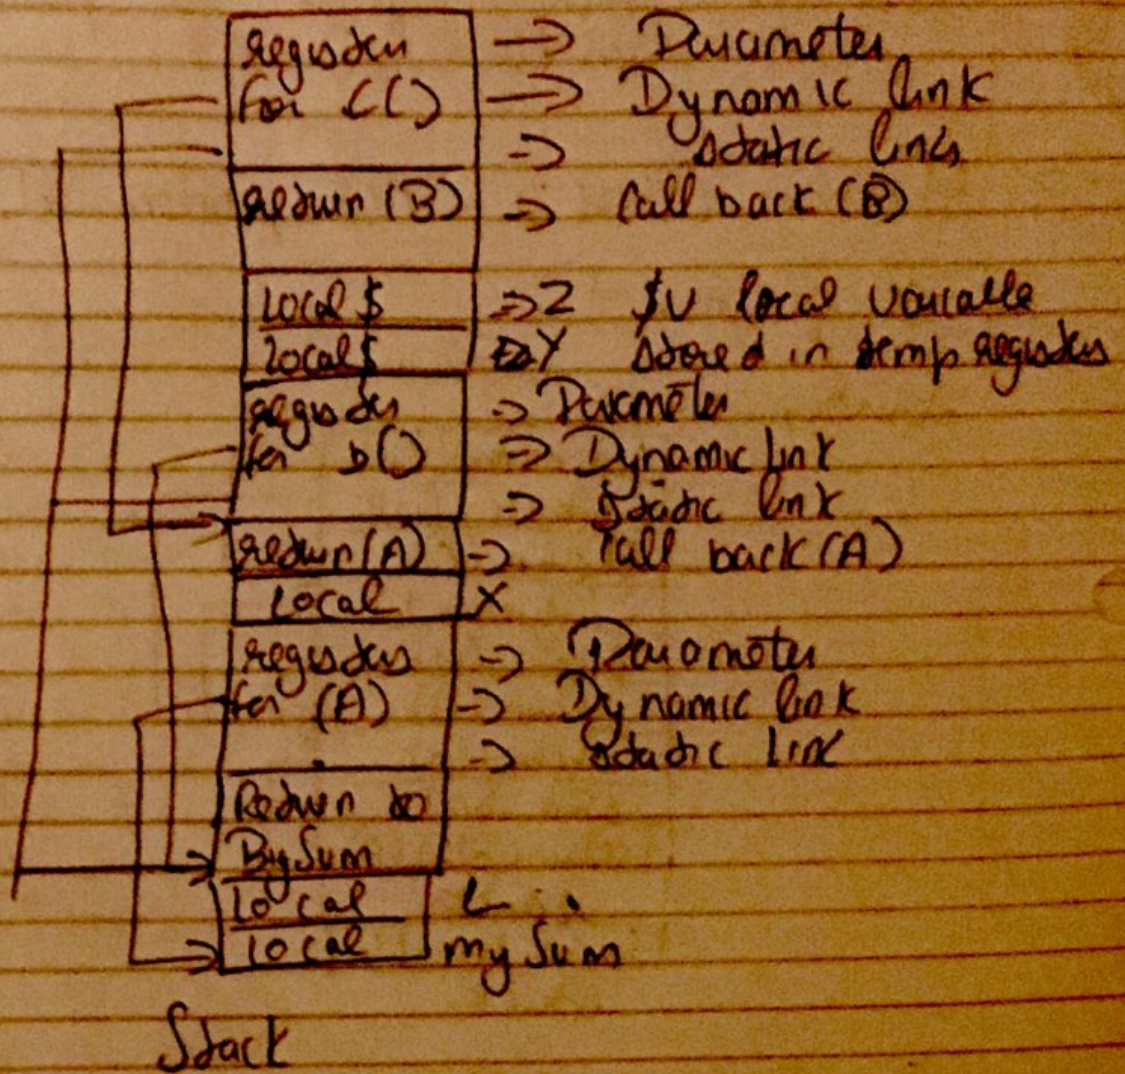 register → Parameter
for C() → Dynamic link
→ static links
return (B) → Call back (B)
Local $ → Z $v local variable
local $ → Y stored in temp registers
register → Parameter
for b() → Dynamic link
→ static link
return (A) → Call back (A)
Local X
registers → Parameter
for (A) → Dynamic link
→ static link
Return to
BigSum
local L
local mySum
Stack